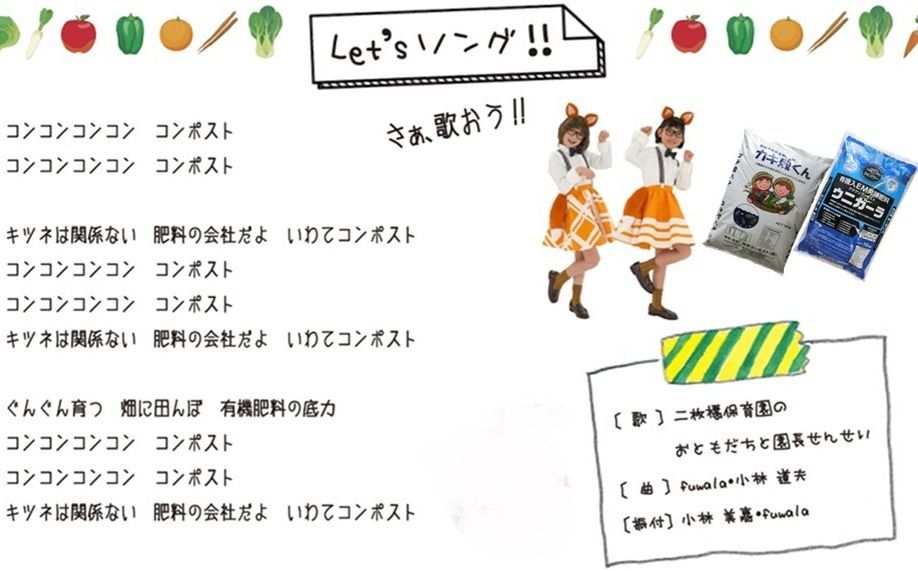 Let'sソング!!
さぁ、歌おう!!
コンコンコンコン コンポスト
コンコンコンコン コンポスト
キツネは関係ない 肥料の会社だよ いわてコンポスト
コンコンコンコン コンポスト
コンコンコンコン コンポスト
キツネは関係ない 肥料の会社だよ いわてコンポスト
ぐんぐん育つ 畑に田んぼ 有機肥料の底力
コンコンコンコン コンポスト
コンコンコンコン コンポスト
キツネは関係ない 肥料の会社だよ いわてコンポスト
カキ殻くん
有機入EM発酵肥料
ウニガーラ
[ 歌 ] 二枚橋保育園の
おともだちと園長せんせい
[ 曲 ] fuwala・小林 道夫
[振付] 小林 美嘉・fuwala